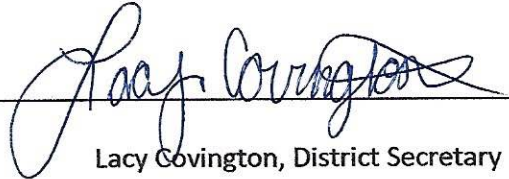 Lacy Covington
Lacy Covington, District Secretary